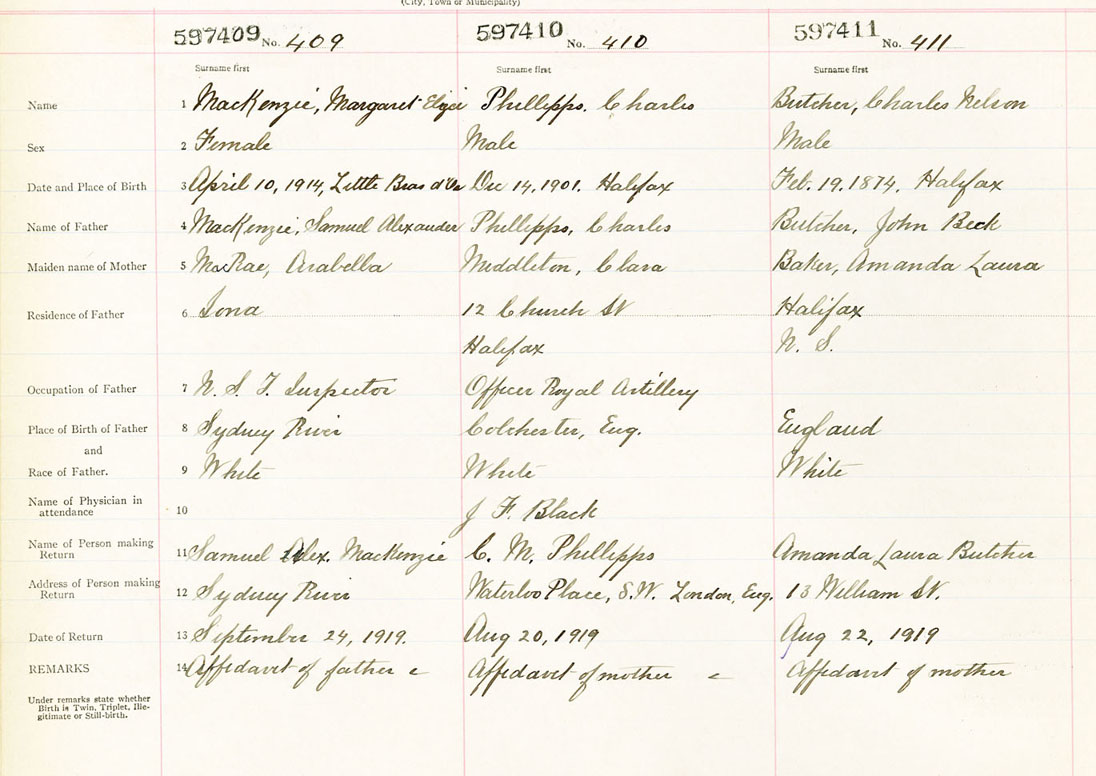 (City, Town or Municipality)
597409 No. 409 597410 No. 410 597411 No. 411
Surname first Surname first Surname first
Name 1 MacKenzie, Margaret Phillipps, Charles Butcher, Charles Nelson
Sex 2 Female Male Male
Date and Place of Birth 3 April 10, 1914, Little Bras d'Or Dec 14, 1901. Halifax Feb. 19, 1874, Halifax
Name of Father 4 MacKenzie, Samuel Alexander Phillipps, Charles Butcher, John Beck
Maiden name of Mother 5 MacRae, Arabella Middleton, Clara Baker, Amanda Laura
Residence of Father 6 Iona 12 Church St Halifax
Halifax N. S.
Occupation of Father 7 N. S. T. Inspector Officer Royal Artillery
Place of Birth of Father 8 Sydney River Colchester, Eng. England
and
Race of Father. 9 White White White
Name of Physician in
attendance 10 J F. Black
Name of Person making
Return 11 Samuel Alex. MacKenzie C. M. Phillipps Amanda Laura Butcher
Address of Person making
Return 12 Sydney River Waterloo Place, S.W. London, Eng. 13 William St.
Date of Return 13 September 24, 1919. Aug 20, 1919 Aug 22, 1919
REMARKS 14 Affidavit of father c Affidavit of mother c Affidavit of mother
Under remarks state whether
Birth is Twin, Triplet, Ille-
gitimate or Still-birth.